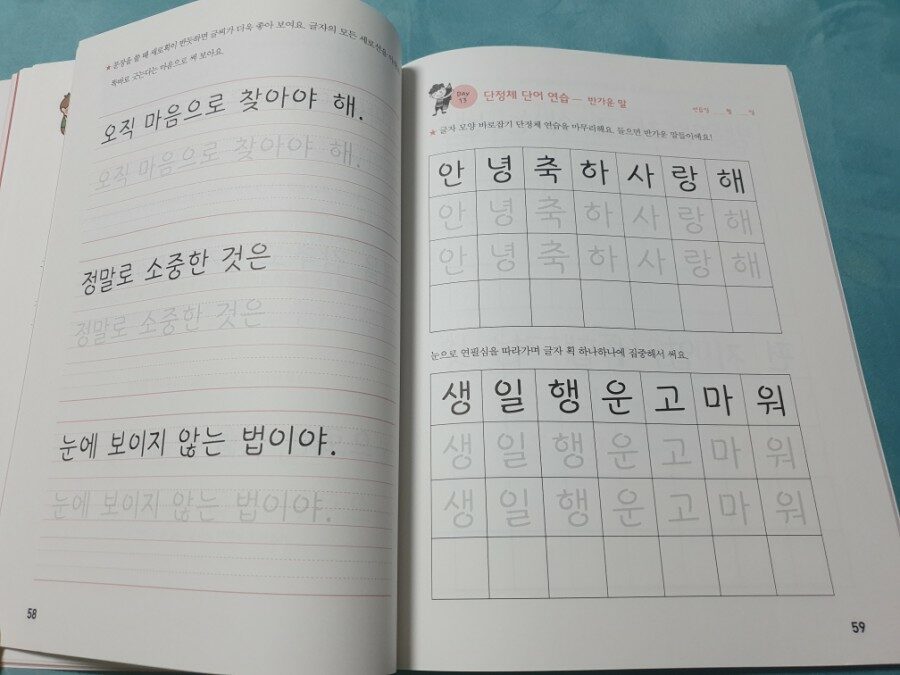 ★ 문장을 쓸 때 세로획이 반듯하면 글씨가 더욱 좋아 보여요. 글자의 모든 세로선을
똑바로 긋는다는 마음으로 써 보아요.
오직 마음으로 찾아야 해.
오직 마음으로 찾아야 해.
정말로 소중한 것은
정말로 소중한 것은
눈에 보이지 않는 법이야.
눈에 보이지 않는 법이야.
58
Day 13
단정체 단어 연습 — 반가운 말
연습일 월 일
★ 글자 모양 바로잡기 단정체 연습을 마무리해요. 들으면 반가운 말들이에요!
안 녕 축 하 사 랑 해
안 녕 축 하 사 랑 해
안 녕 축 하 사 랑 해
눈으로 연필심을 따라가며 글자 획 하나하나에 집중해서 써요.
생 일 행 운 고 마 워
생 일 행 운 고 마 워
생 일 행 운 고 마 워
59